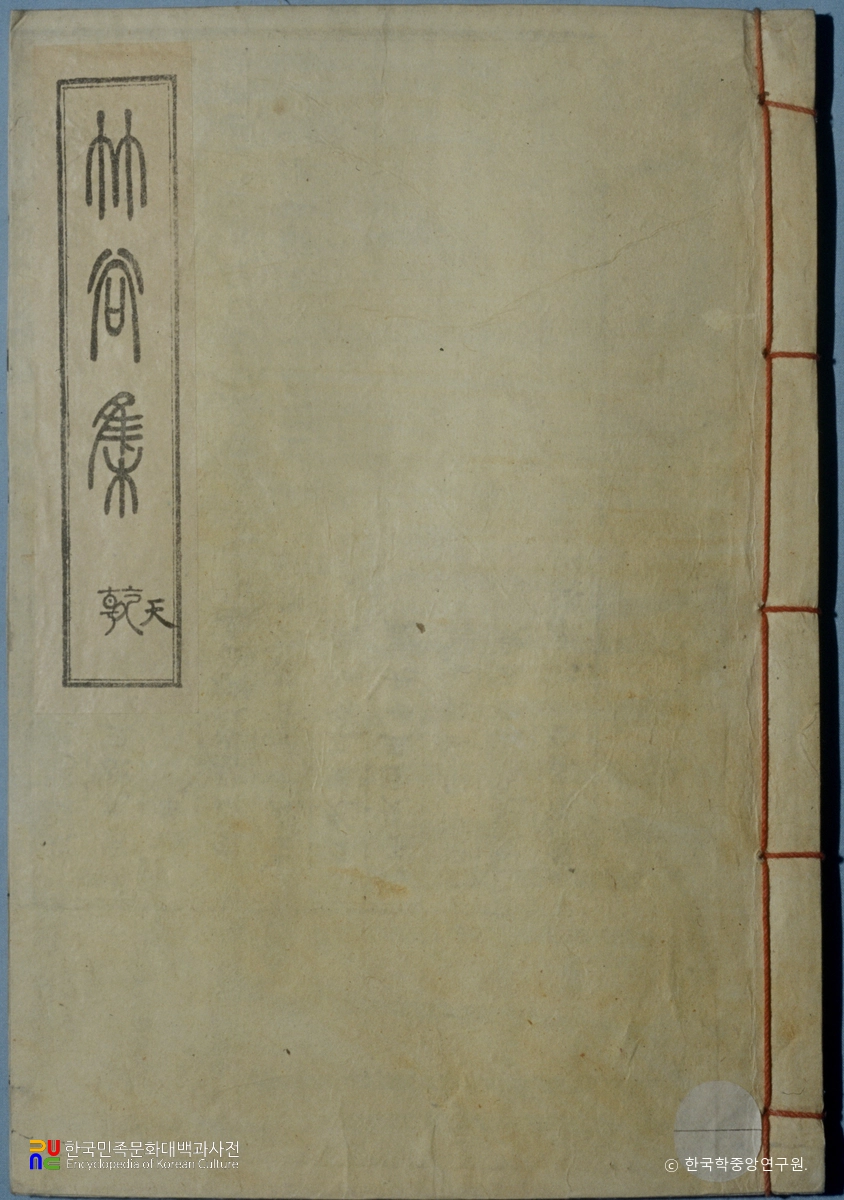 竹谷集
乾
天
한국민족문화대백과사전
Encyclopedia of Korean Culture
© 한국학중앙연구원.